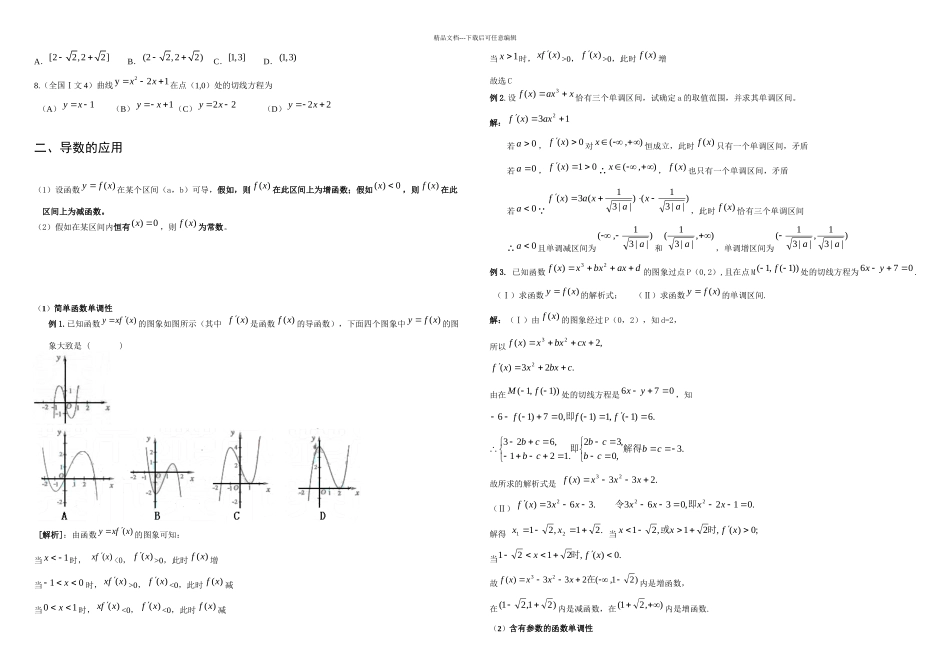 精品文档---下载后可任意编辑
A. [2 2,2 2] B. (2 2,2 2) C. [1,3] D. (1,3)
8.(全国Ⅰ文4)曲线 y x² 2x 1 在点(1,0)处的切线方程为
(A) y x 1 (B) y x 1 (C) y 2x 2 (D) y 2x 2
二、导数的应用
(1)设函数 y f(x) 在某个区间(a,b)可导,假如,则 f(x) 在此区间上为增函数;假如 (x) 0 ,则 f(x) 在此
区间上为减函数。
(2)假如在某区间内恒有 (x) 0 ,则 f(x) 为常数。
(1)简单函数单调性
例1.已知函数 y xf′(x) 的图象如图所示(其中 f′(x) 是函数 f(x) 的导函数),下面四个图象中 y f(x) 的图
象大致是 ( )
y
1
-2 -1 O 1 2 x
-1
y y y y
2 2 4 4
1 1 2 2
-2 O 2 x -2 -1 O 1 2 x O 1 2 x -2 O 2 x
-2 -2
A B C D
[解析]:由函数 y xf′(x) 的图象可知:
当 x 1 时, xf′(x) <0, f′(x) >0,此时 f(x) 增
当 1 x 0 时, xf′(x) >0, f′(x) <0,此时 f(x) 减
当 0 x 1 时, xf′(x) <0, f′(x) <0,此时 f(x) 减
当 x 1 时, xf′(x) >0, f′(x) >0,此时 f(x) 增
故选C
例2.设 f(x) ax³ x 恰有三个单调区间,试确定a的取值范围,并求其单调区间。
解: f′(x) 3ax² 1
若 a 0 , f′(x) 0 对 x (- ,+ ) 恒成立,此时 f(x) 只有一个单调区间,矛盾
若 a 0 , f′(x) 1 0 ∴ x (- ,+ ) , f(x) 也只有一个单调区间,矛盾
若 a 0 ∵ f′(x) 3a(x 1/√3|a|) · (x 1/√3|a|) ,此时 f(x) 恰有三个单调区间
∴ a 0 且单调减区间为 (- , 1/√3|a|) 和 (1/√3|a| ,+ ) ,单调增区间为 ( 1/√3|a| , 1/√3|a|)
例3. 已知函数 f(x) x³ bx² ax d 的图象过点P(0,2),且在点M ( 1, f( 1)) 处的切线方程为 6x y 7 0 .
(Ⅰ)求函数 y f(x) 的解析式; (Ⅱ)求函数 y f(x) 的单调区间.
解:(Ⅰ)由 f(x) 的图象经过P(0,2),知d=2,
所以 f(x) x³ bx² cx 2,
f′(x) 3x² 2bx c.
由在 M( 1, f( 1)) 处的切线方程是 6x y 7 0 ,知
6 f( 1) 7 0,即f( 1) 1, f′( 1) 6.
∴ {3 2b c 6, 1 b c 2 1. 即 {2b c 3, b c 0, 解得b c 3.
故所求的解析式是 f(x) x³ 3x² 3x 2.
(Ⅱ) f′(x) 3x² 6x 3. 令3x² 6x 3 0,即x² 2x 1 0.
解得 x₁ 1 2, x₂ 1 2. 当 x 1 2,或x 1 2时, f′(x) 0;
当 1 2 x 1 2时, f′(x) 0.
故 f(x) x³ 3x² 3x 2在( ,1 2) 内是增函数,
在 (1 2,1 2) 内是减函数,在 (1 2, ) 内是增函数.
(2)含有参数的函数单调性